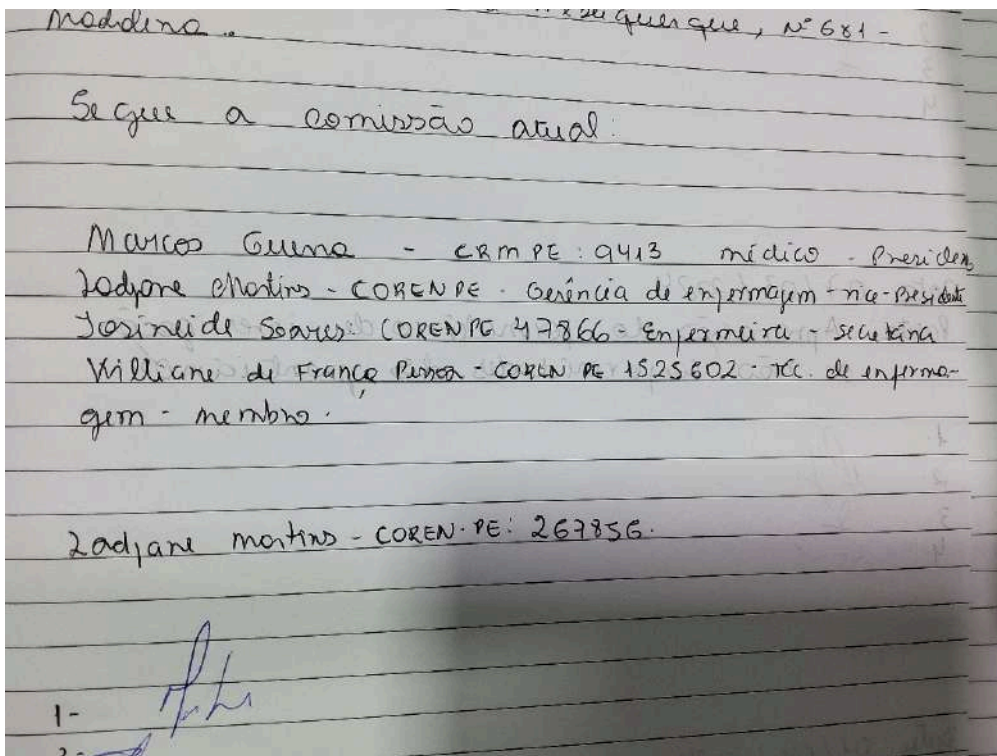 Madalena.
querque, Nº 681 -
Segue a comissão atual:
Marcos Guena - CRM PE: 9413 médico - Presiden
Ladjane Martins - COREN PE - Gerência de enfermagem - vice-Presidente
Josineide Soares: COREN PE 47866 - Enfermeira - secretária
Williane de França Pessoa - COREN PE 1525602 - téc. de enferma-
gem - membro.
Ladjane Martins - COREN-PE: 267856.
1-
2-